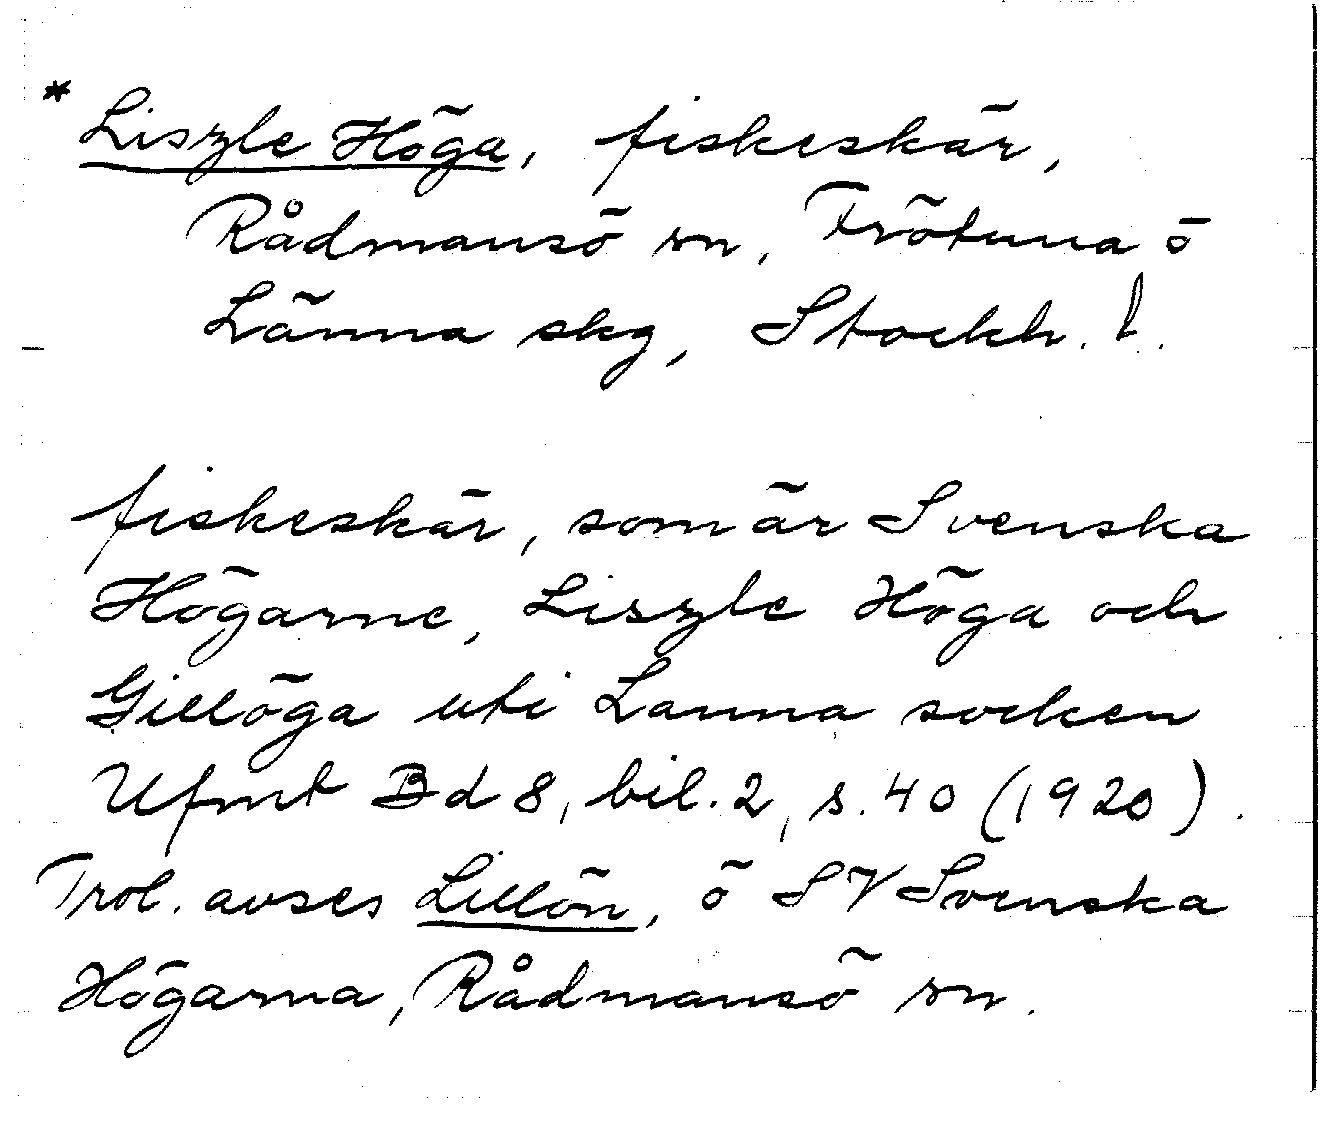 * Liszle Höga, fiskeskär,
Rådmansö sn, Frötuna o
Länna skg, Stockh. l.
fiskeskär, som är Svenska
Högarne, Liszle Höga och
Gillöga uti Lanna socken
Ufmt Bd 8, bil. 2, s. 40 (1920).
Trol. avses Lillön, ö SV Svenska
Högarna, Rådmansö sn.